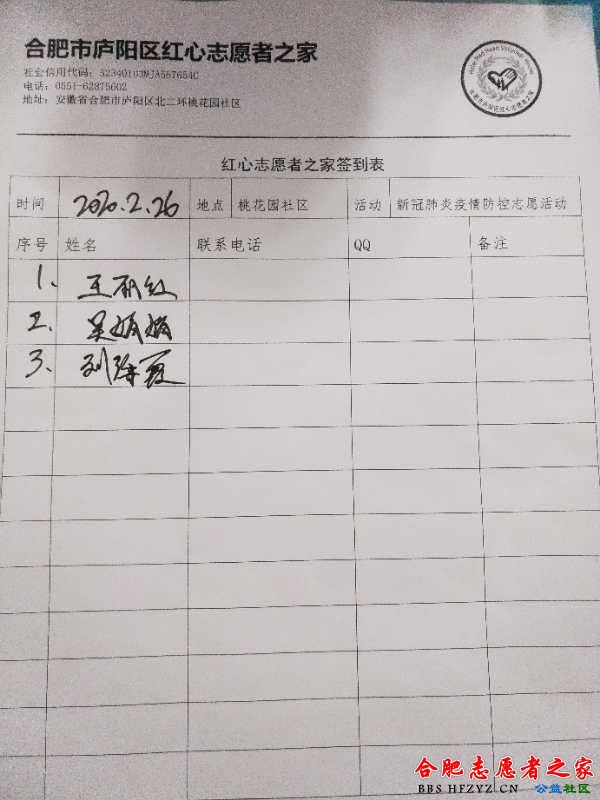 合肥市庐阳区红心志愿者之家
社会信用代码：52340103MJA557654C
电话：0551-62875602
地址：安徽省合肥市庐阳区北二环桃花园社区
Hefei Red Heart Volunteer Home
合肥市庐阳区红心志愿者之家
红心志愿者之家签到表
时间 2020.2.26 地点 桃花园社区 活动 新冠肺炎疫情防控志愿活动
序号 姓名 联系电话 QQ 备注
1、 王丽红
2、 吴娟娟
3、 刘
合肥志愿者之家
BBS.HFZYZ.CN 公益社区